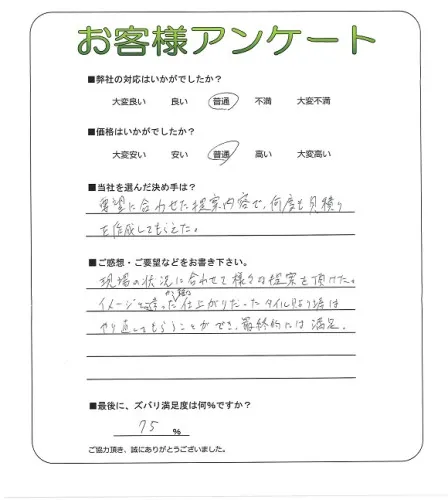 お客様アンケート
■弊社の対応はいかがでしたか?
大変良い 良い 普通 不満 大変不満
■価格はいかがでしたか?
大変安い 安い 普通 高い 大変高い
■当社を選んだ決め手は?
要望に合わせた提案内容で、何度も見積り
を作成してもらえた。
■ご感想・ご要望などをお書き下さい。
現場の状況に合わせて様々な提案を頂けた。
イメージと違った仕上がりだったタイル貼り等は
やり直してもらうことができ、最終的には満足。
■最後に、ズバリ満足度は何%ですか?
75 %
ご協力頂き、誠にありがとうございました。